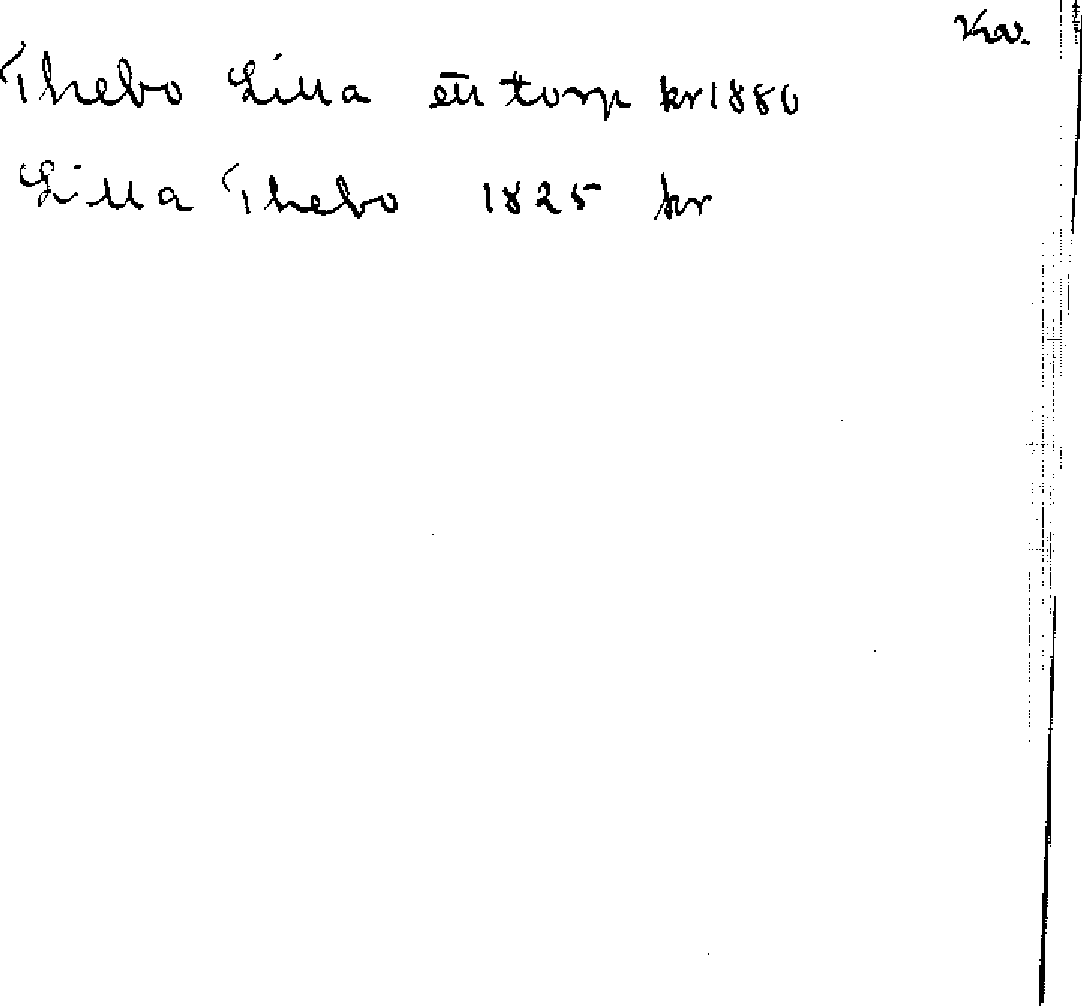 Kra.
Thebo Lilla ett torp kr 1880
Lilla Thebo 1825 kr